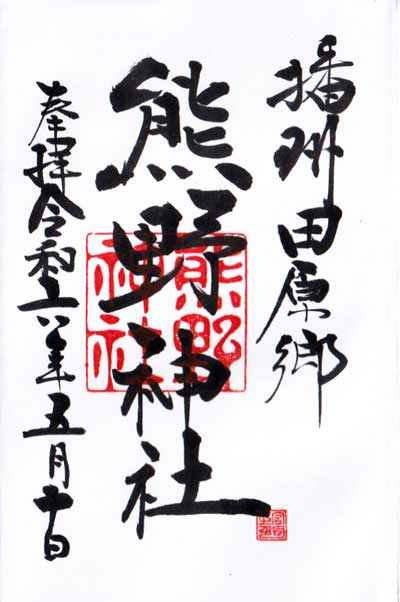 播州田原郷
熊野神社
熊野
神社
奉拝令和六年五月十日